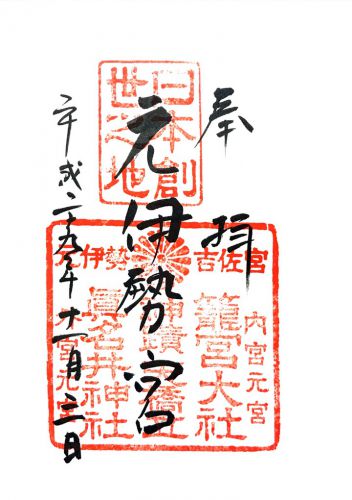 奉拝
日本創
世之地
元伊勢宮
元伊勢
吉佐宮
内宮元宮
籠宮大社
眞名井神社
平成二十九年十一月三日